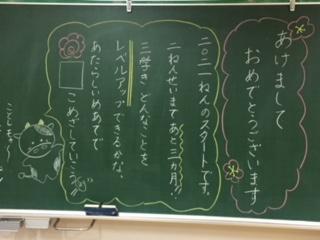 あけまして
おめでとうございます
二〇二一ねんのスタートです。
二ねんせいまであと三か月!!
三学き どんなことを
レベルアップできるかな。
あたらしいめあてで
こめていこう